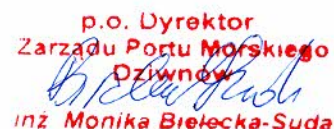 p.o. Dyrektor
Zarządu Portu Morskiego
Dziwnów
inż. Monika Bielecka-Suda